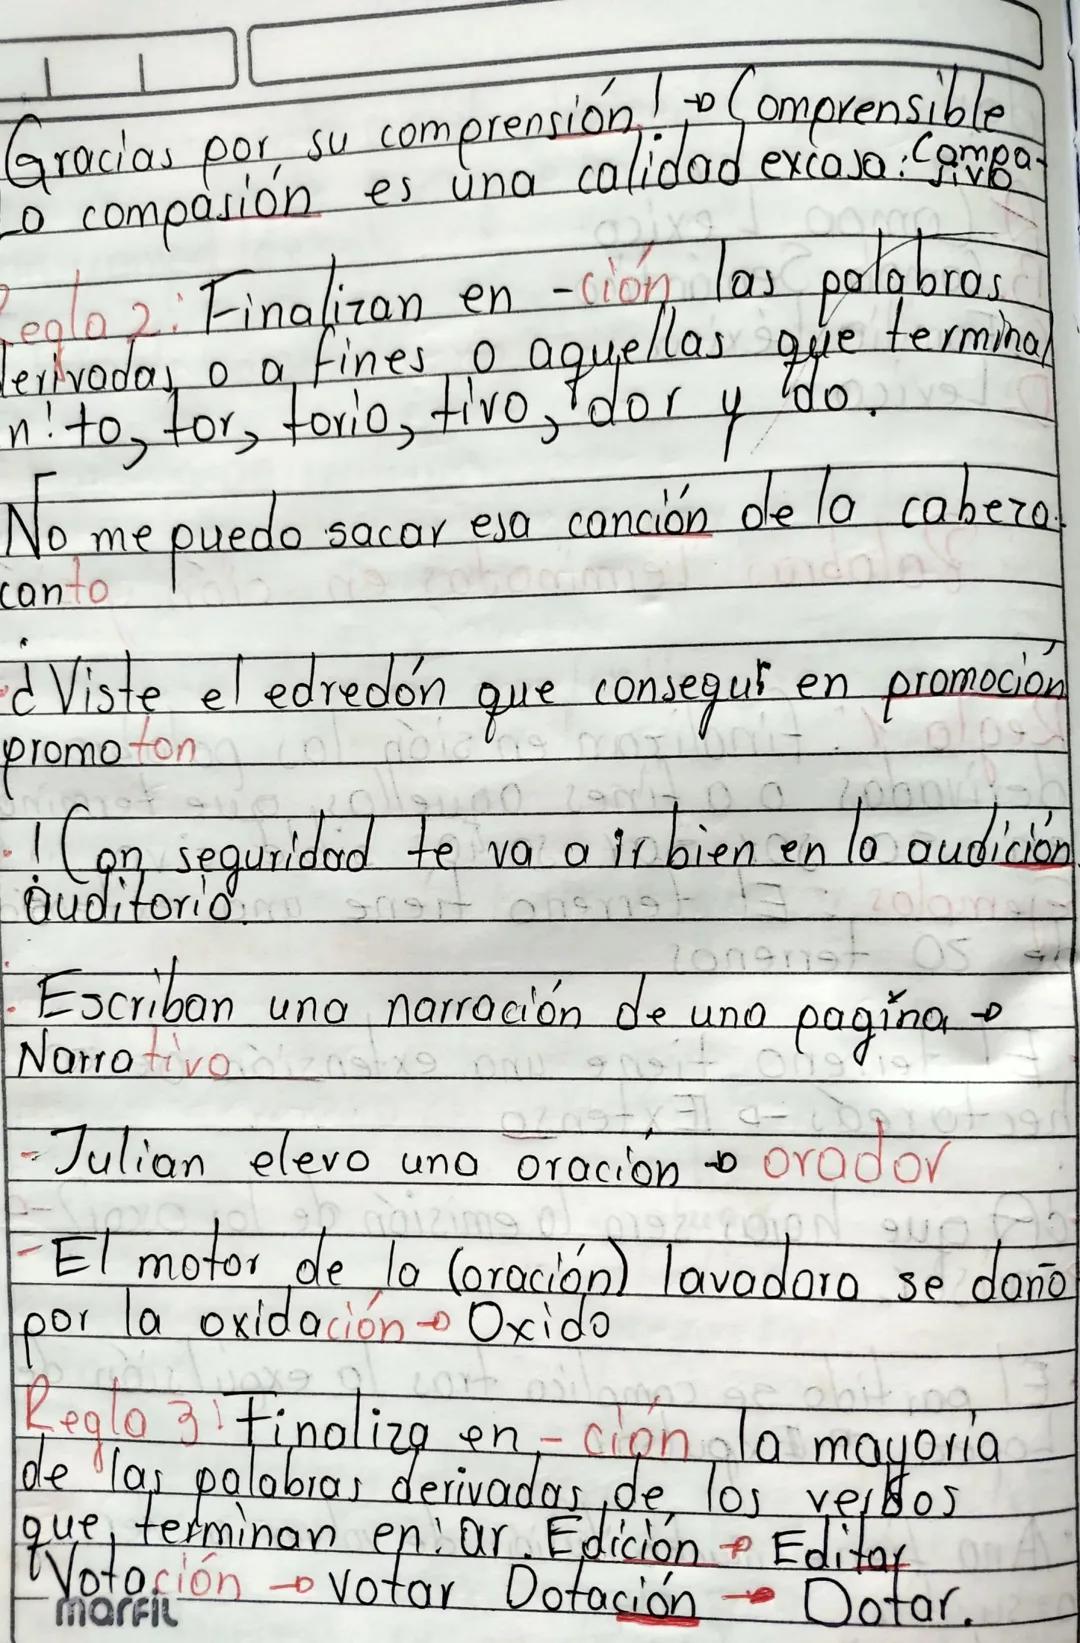 Gracias por su comprensión! → Comprensible
Lo compásión es una calidad excasa: Compa-
sivo
Regla 2: Finalizan en -ción las palabras
derivadas o a fines o aquellas que terminal
n: to, tor, torio, tivo, dor y do.
No me puedo sacar esa canción de la cabeza.
canto
¿Viste el edredón que conseguí en promoción
promoton
! Con seguridad te va a ir bien en la audición
auditorio
. Escriban una narración de una pagina →
Narrativo
- Julian elevo una oración → orador
- El motor de la (oración) lavadora se daño
por la oxidación → Oxido
Regla 3: Finaliza en - ción la mayoría
de las palabras derivadas de los verbos
que terminan en: ar. Edición → Editar
Votación → votar Dotación → Dotar.
marfil